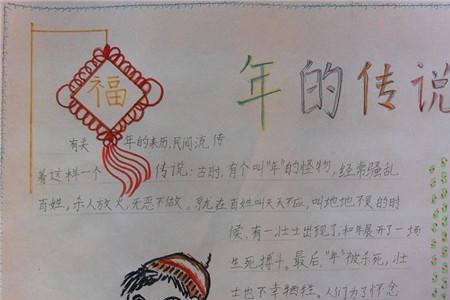 福
年的传说
有关 年的来历,民间流传
着这样一个 传说:古时,有个叫"年"的怪物,经常骚乱
百姓,杀人放火,无恶不做。就在百姓叫天天不应,叫地地不灵的时
候,有一壮士出现了,和年展开了一场
生死搏斗。最后,"年"被杀死,壮
士也不幸牺牲。人们为了怀念